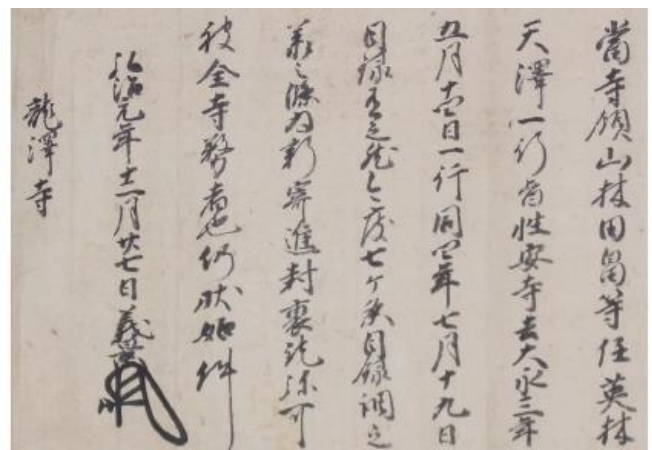 當寺領山林田畠等任英林
天澤一行旨性安寺去大永三年
五月十四日一行同四年七月十九日
目録在之然今度七ヶ条目録調之
義之條為新寄進封裏訖弥可
被全寺務者也仍状如件
弘治元年十二月廿七日義景
龍澤寺